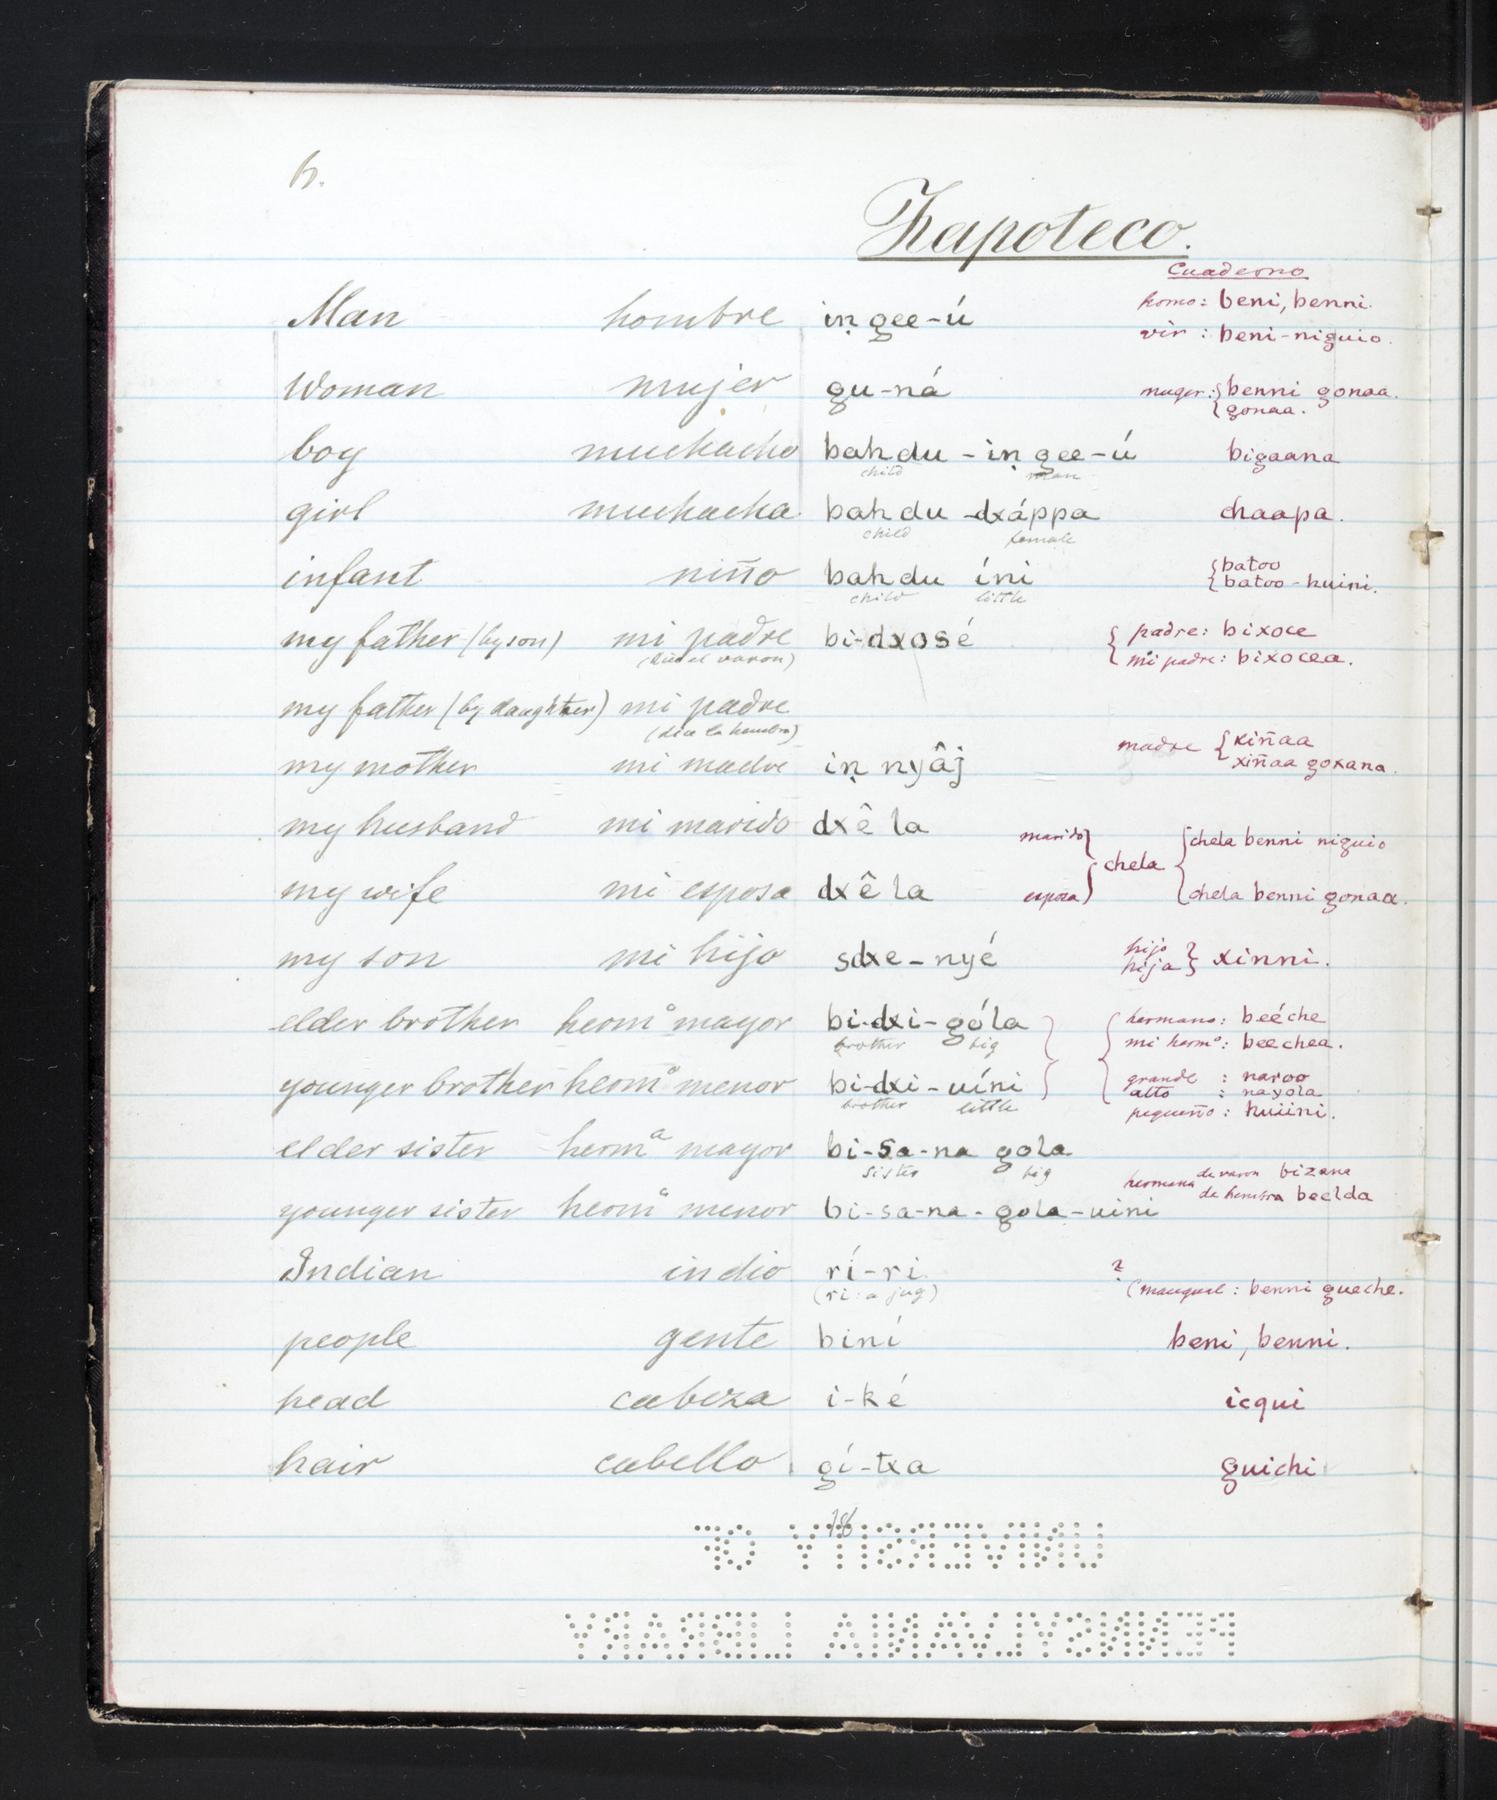 6.
Zapoteco.
Cuaderno
Man hombre iṇ gee-ú homo: beni, benni.
vir: beni-niguio.
Woman mujer gu-ná muger: { benni gonaa.
{ gonaa.
boy muchacho bahdu - iṇ gee-ú bigaana
child man
girl muchacha bahdu -dxáppa chaapa.
child female
infant niño bahdu íni { batoo
{ batoo-huini.
child little
my father (by son) mi padre bi-dxosé { padre: bixoce
(dice el varon) { mi padre: bixocea.
my father (by daughter) mi padre
(dice la hembra)
my mother mi madre iṇ nyâj madre { xiñaa
xiñaa goxana.
my husband mi marido dxêla marido } chela { chela benni niguio
my wife mi esposa dxêla esposa } { chela benni gonaa.
my son mi hijo sdxe-nyé hijo
hija } xinni.
elder brother herm.o mayor bi-dxi-góla } { hermano: beéche
brother big mi herm.o: beechea.
younger brother herm.o menor bi-dxi-uíni grande : naroo
brother little alto : naxola
pequeño : huiini.
elder sister herm.a mayor bi-sa-na gola
sister big hermana de varon bizana
de hembra beelda
younger sister herm.a menor bi-sa-na-gola-uini
Indian indio rí-ri ?
(ri: a jug) (mangual: benni gueche.
people gente biní beni, benni.
head cabeza i-ké icqui
hair cabello gí-txa guichi
186
UNIVERSITY OF
PENNSYLVANIA LIBRARY